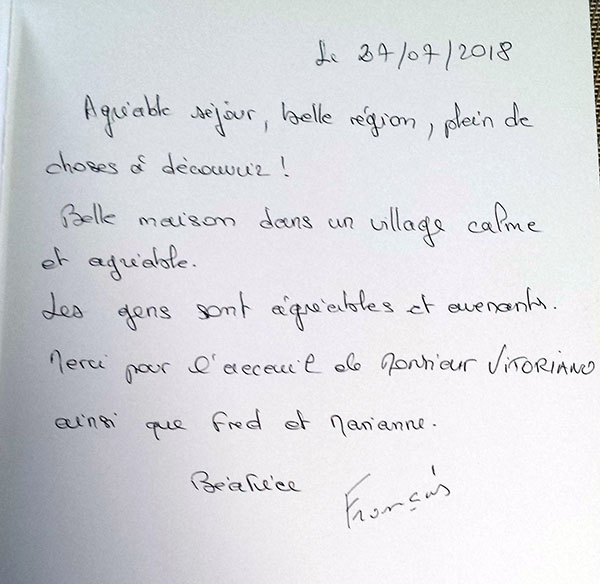 Le 27/07/2018
Agréable séjour, belle région, plein de
choses à découvrir !
Belle maison dans un village calme
et agréable.
Les gens sont agréables et avenants.
Merci pour l'acceuil de Monsieur VITORIANO
ainsi que Fred et Marianne.
Béatrice François